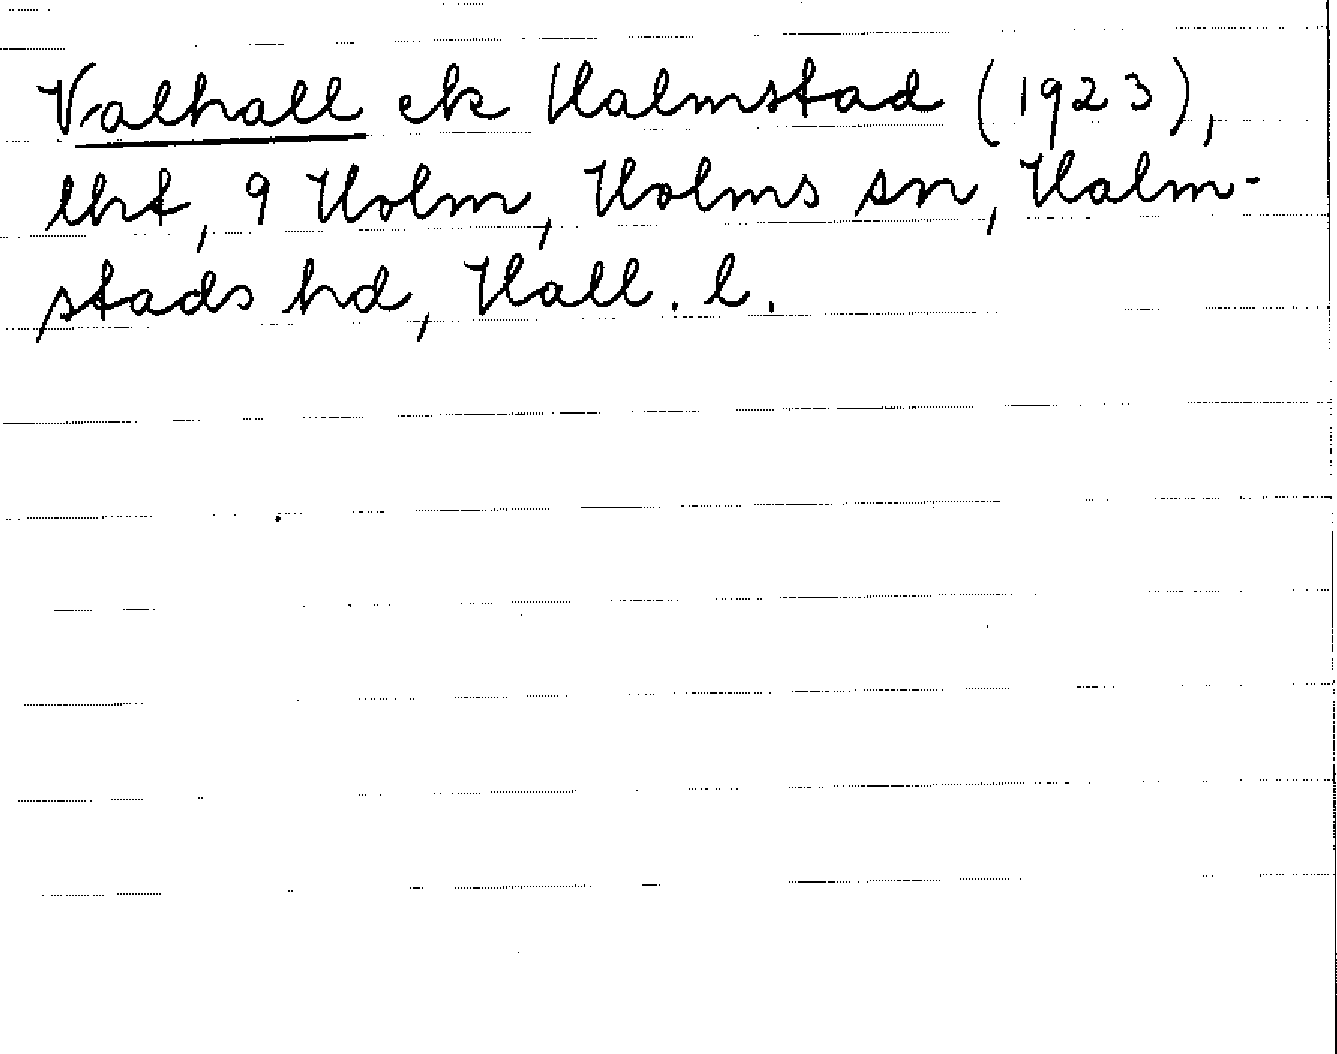 Valhall ek Halmstad (1923),
lht, 9 Holm, Holms sn, Halm-
stads hd, Hall. l.